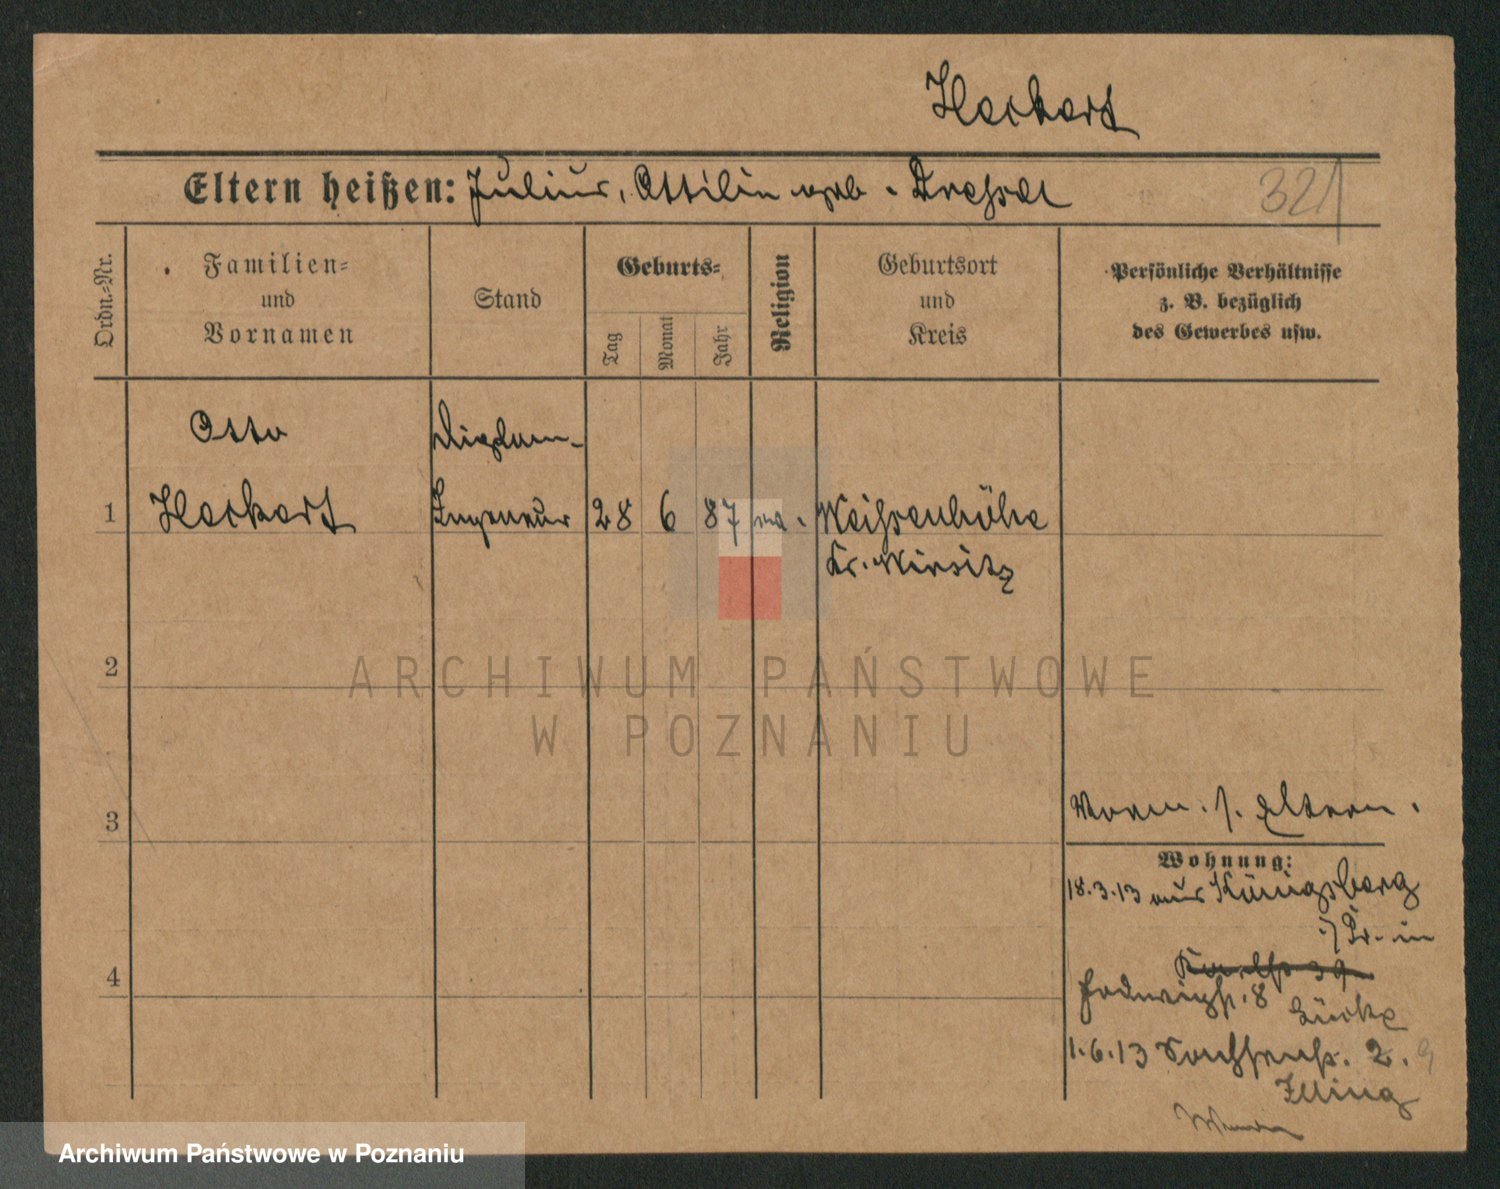 Heckert
Eltern heißen: Julius, Ottilie geb. Dressel
321
Ordn.-Nr.
Familien-
und
Vornamen
Stand
Geburts-
Tag
Monat
Jahr
Religion
Geburtsort
und
Kreis
Persönliche Verhältnisse
z. B. bezüglich
des Gewerbes usw.
Otto Diplom-
1 Heckert Ingenieur 28 6 87 ev. Weißenhöhe
Kr. Wirsitz
2
ARCHIWUM PAŃSTWOWE
W POZNANIU
3
Vorm. s. Eltern.
Wohnung:
18.3.13 aus Königsberg
i/Pr. in
4
Hedwigstr. 8
1.6.13 2.
Illing
Archiwum Państwowe w Poznaniu